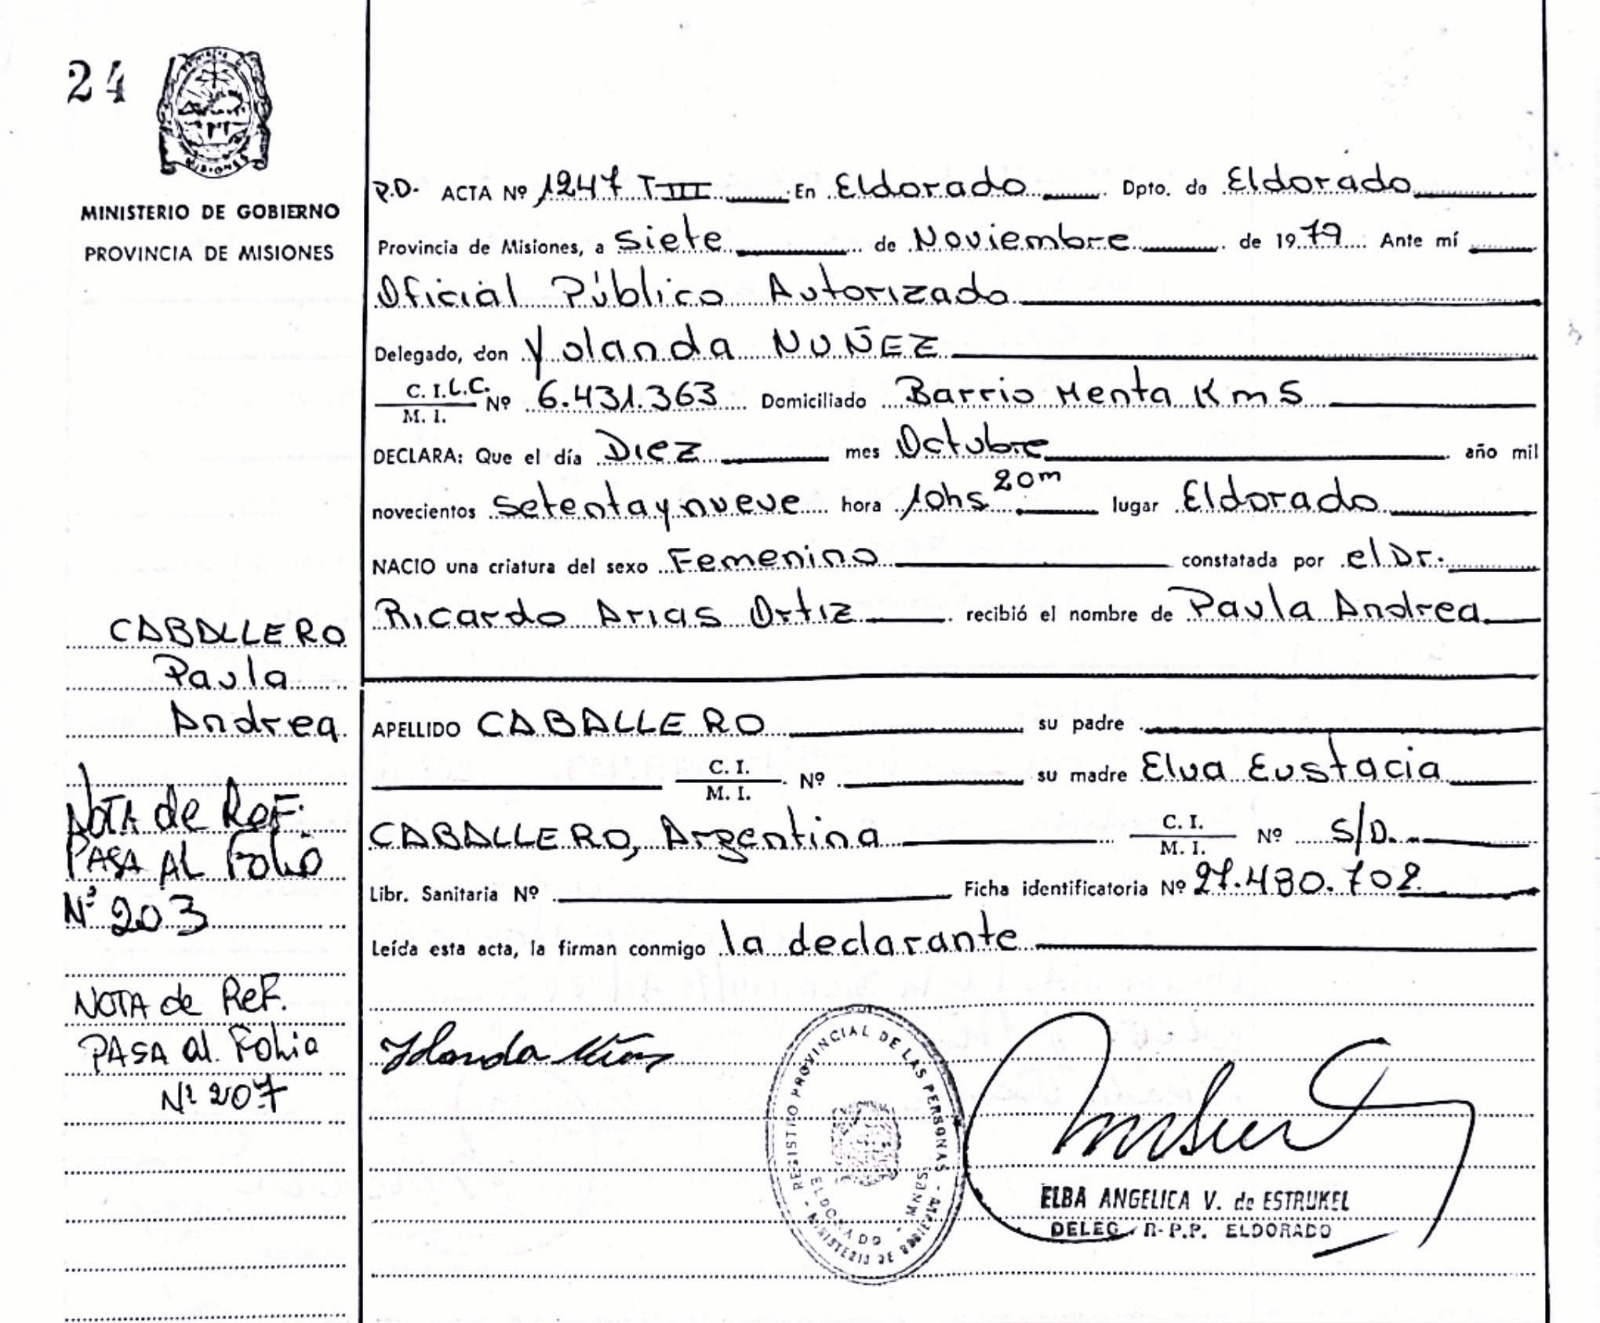 24
MISIONES
MINISTERIO DE GOBIERNO
PROVINCIA DE MISIONES
P.D. ACTA Nº 1247 T III En Eldorado Dpto. de Eldorado
Provincia de Misiones, a siete de Noviembre de 1979 Ante mí
Oficial Público Autorizado
Delegado, don Yolanda NUÑEZ
C. I. L.C. Nº 6.431.363 Domiciliado Barrio Menta Km 5
M. I.
DECLARA: Que el día Diez mes Octubre año mil
novecientos setenta y nueve hora 10hs 20m lugar Eldorado
NACIO una criatura del sexo Femenino constatada por el Dr.
Ricardo Arias Ortiz recibió el nombre de Paula Andrea
APELLIDO CABALLERO su padre
C. I. Nº su madre Elva Eustacia
M. I.
CABALLERO, Argentina C. I. Nº S/D.
M. I.
Libr. Sanitaria Nº Ficha identificatoria Nº 27.480.702
Leída esta acta, la firman conmigo la declarante
CABALLERO
Paula
Andrea
NOTA de Ref.
PASA AL Folio
Nº 203
NOTA de Ref.
PASA al Folio
Nº 207
Yolanda
REGISTRO PROVINCIAL DE LAS PERSONAS
ELDORADO
MINISTERIO DE
ELBA ANGELICA V. de ESTRUKEL
DELEG. R.P.P. ELDORADO